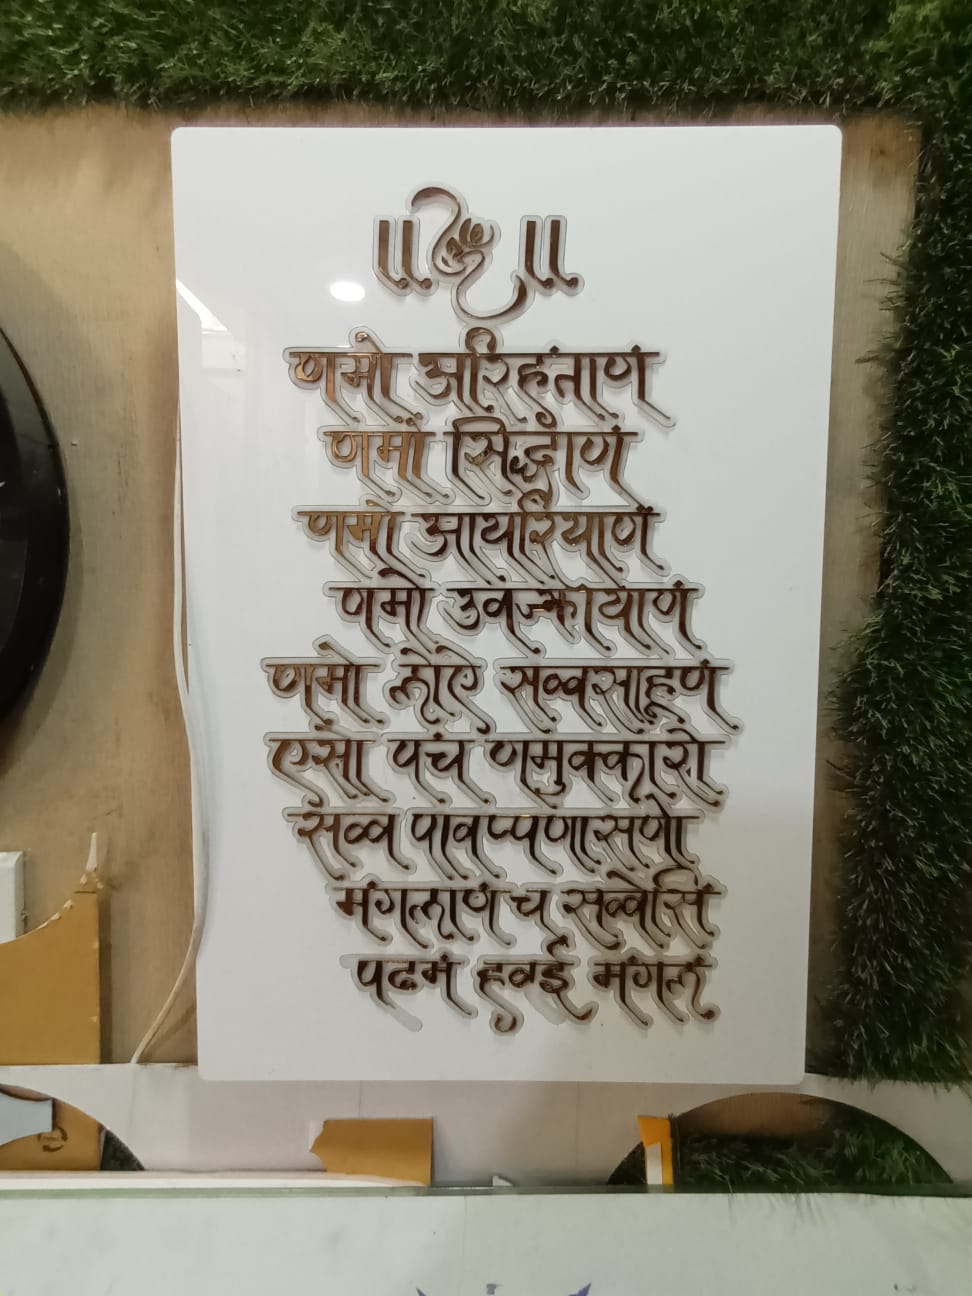 ॥ श्री ॥
णमो अरिहंताणं
णमो सिद्धाणं
णमो आयरियाणं
णमो उवज्झायाणं
णमो लोए सव्वसाहूणं
एसो पंच णमुक्कारो
सव्व पावप्पणासणो
मंगलाणं च सव्वेसिं
पढमं हवई मंगलं